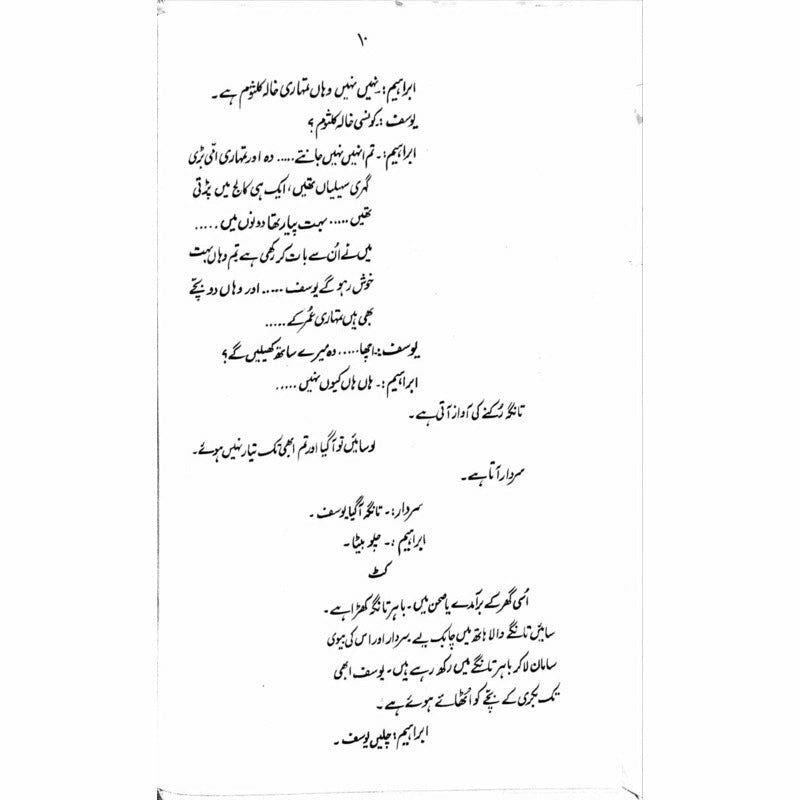 ۱۰
ابراہیم:۔ نہیں نہیں وہاں تمہاری خالہ کلثوم ہے۔
یوسف :۔ کونسی خالہ کلثوم ؟
ابراہیم:۔ تم انہیں نہیں جانتے..... وہ اور تمہاری امّی بڑی
گہری سہیلیاں تھیں، ایک ہی کالج میں پڑتی
تھیں ..... بہت پیار تھا دونوں میں .....
میں نے اُن سے بات کر رکھی ہے تم وہاں بہت
خوش رہو گے یوسف ..... اور وہاں دو بچّے
بھی ہیں تمہاری عمُر کے .....
یوسف:۔ اچھا ..... وہ میرے ساتھ کھیلیں گے؟
ابراہیم:۔ ہاں ہاں کیوں نہیں .....
تانگہ رُکنے کی آواز آتی ہے۔
لو سائیں تو آگیا اور تم ابھی تک تیار نہیں ہوئے۔
سردار آتا ہے۔
سردار:۔ تانگہ آگیا یوسف ۔
ابراہیم :۔ چلو بیٹا۔
کٹ
اُسی گھر کے برآمدے یا صحن میں۔ باہر تانگہ کھڑا ہے۔
سائیں تانگے والا ہاتھ میں چابک لیے سردار اور اس کی بیوی
سامان لا کر باہر تانگے میں رکھ رہے ہیں۔ یوسف ابھی
تک بکری کے بچّے کو اُٹھائے ہوئے ہے۔
ابراہیم: چلیں یوسف ۔